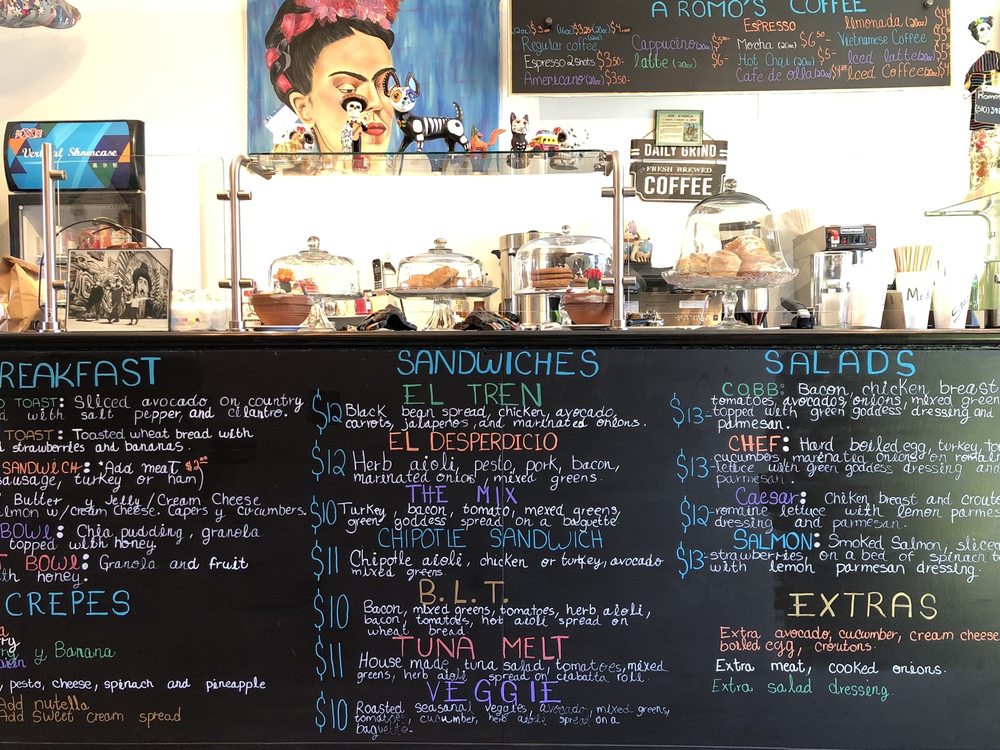 AROMO'S COFFEE
Regular coffee
Espresso 2 shots $3.50
Americano (20oz) $3.50
Cappucino (20oz) $
latte (20oz) $6-
ESPRESSO
Mocha (20oz) $6.50
Hot Chai (20oz) $5-
Cafe de olla (20oz)
lemonada (20oz)
Vietnamese Coffee
Iced latte (20oz) $5
Iced Coffee (20oz) $4
Vertical Showcase
DAILY GRIND
FRESH BREWED
COFFEE
REAKFAST
TOAST: Sliced avocado on country
with salt pepper, and cilantro.
TOAST: Toasted wheat bread with
strawberries and bananas.
SANDWICH: Add meat $2.00
sausage, turkey or ham)
Butter y Jelly/Cream Cheese
w/cream cheese. Capers y cucumbers.
BOWL: Chia pudding, granola
topped with honey.
BOWL: Granola and fruit
with honey.
CREPES
y Banana
, pesto, cheese, spinach and pineapple
Add nutella
Add sweet cream spread
SANDWICHES
EL TREN
$12 Black bean spread, chicken, avocado,
carrots, jalapeños, and marinated onions.
EL DESPERDICIO
$12 Herb aioli, pesto, pork, bacon,
marinated onions, mixed greens.
THE MIX
$10 Turkey, bacon, tomato, mixed greens,
green goddess spread on a baguette
CHIPOTLE SANDWICH
$11 Chipotle aioli, chicken or turkey, avocado
mixed greens
B.L.T.
$10 Bacon, mixed greens, tomatoes, herb aioli,
bacon, tomatoes, hob aioli spread on
wheat bread.
TUNA MELT
$11 House made tuna salad, tomatoes, mixed
greens, herb aioli spread on ciabatta roll.
VEGGIE
$10 Roasted seasonal veggies, avocado, mixed greens,
tomatoes, cucumber, herb aioli spread on a
baguette.
SALADS
COBB: Bacon, chicken breast
tomatoes, avocados onions, mixed green
$13- topped with green goddess dressing and
parmesan.
CHEF: Hard boiled egg, turkey, to
cucumbers, onions on
$13- lettuce with green goddess dressing and
parmesan.
Caesar: Chiken breast and crouto
$12- romaine lettuce with lemon parmes
dressing and parmesan.
SALMON: Smoked Salmon, sliced
$13- strawberries, on a bed of spinach
with lemon parmesan dressing.
EXTRAS
Extra avocado, cucumber, cream cheese
boiled egg, croutons.
Extra meat, cooked onions.
Extra salad dressing.